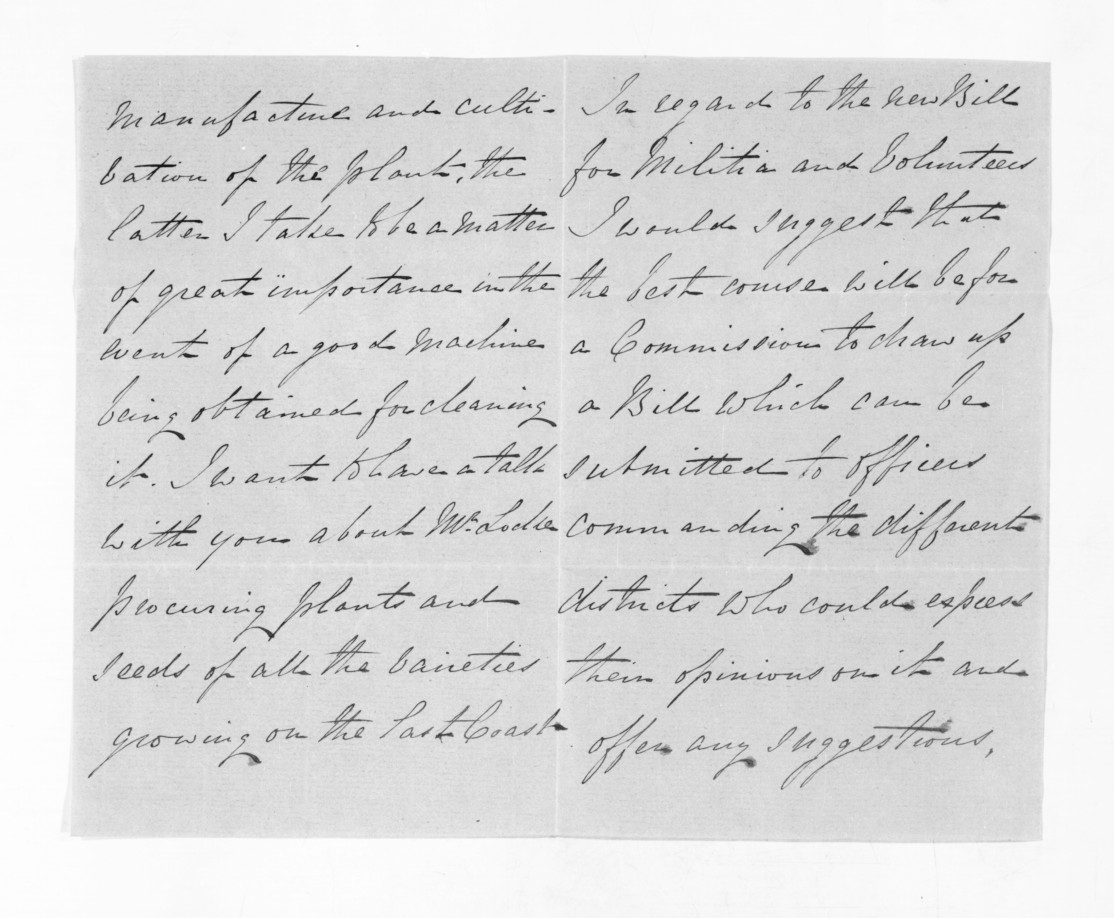 manufacture and culti-
vation of the plant, the
latter I take to be a matter
of great importance in the
event of a good machine
being obtained for cleaning
it. I want to have a talk
with you about Mr. Locke
procuring plants and
seeds of all the varieties
growing on the East Coast
In regard to the new Bill
for Militia and Volunteers
I would suggest that
the best course will be for
a Commission to draw up
a Bill which can be
submitted to officers
commanding the different
districts who could express
their opinions on it and
offer any suggestions,